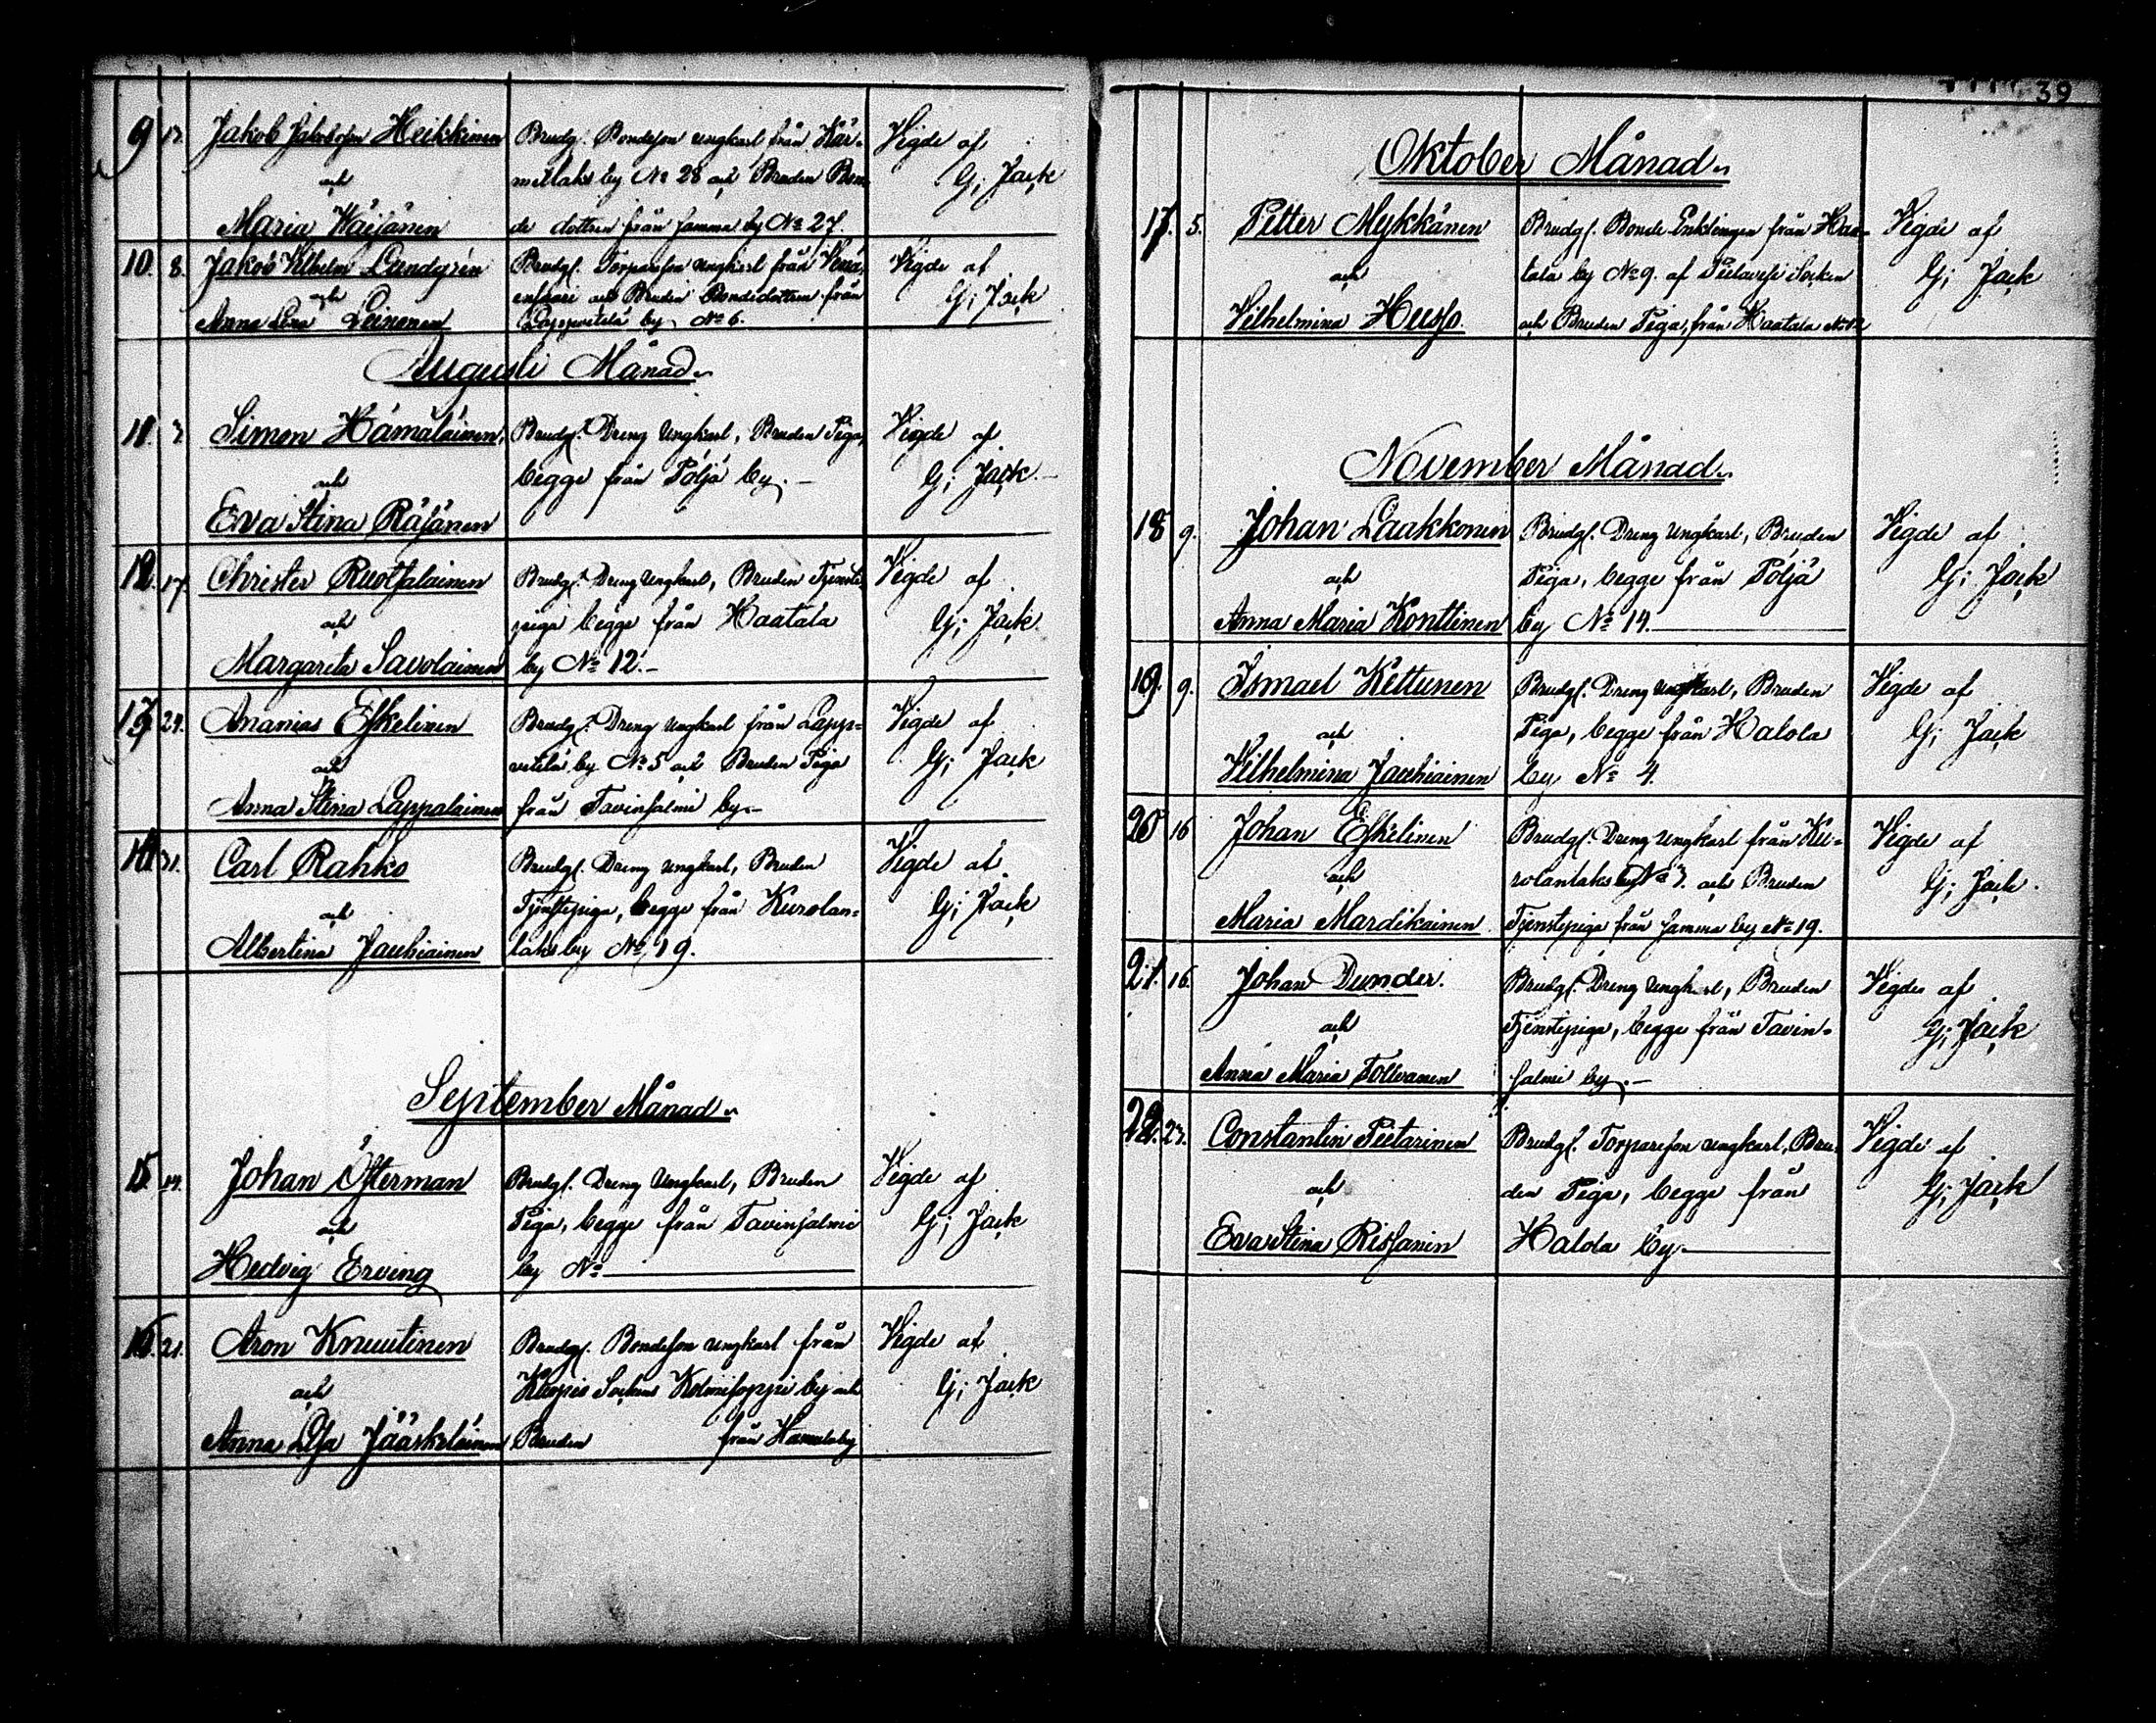 9 13. Jakob Jakobsson Heikkinen Brudg. Bondeson ungkarl från Kär- Vigde af
och mellaks by No 28 och Bruden Bon- G; Jack
Maria Wäisänen de dottren från samma by No 27.
10. 8. Jakob Vilhelm Lundgrén Brudg. Torpareson ungkarl från Vigde af
och och Bruden Bondedottren från G; Jack
Anna Lena Leinonen Lappvetelä by No 6.
Augusti Månad.
11. 3 Simon Hämäläinen, Brudg. Dreng Ungkarl, Bruden Piga, Vigde af
och begge från Pöljä by. G; Jack.
Eva Stina Räsänen
12. 17. Christer Ruotsalainen Brudg. Dreng Ungkarl, Bruden Tjenste- Vigde af
och piga begge från Haatala G; Jack.
Margareta Savolainen by No 12.-
13 24. Ananias Eskelinen Brudg. Dreng Ungkarl från Lapp- Vigde af
och vetelä by No 5 och Bruden Piga G; Jack
Anna Stina Lappalainen från Tavinsalmi by.-
14 31. Carl Rahko Brudg. Dreng Ungkarl, Bruden Vigde af
och Tjenstepiga, begge från Kurolan- G; Jack
Albertina Jauhiainen laks by No 19.
September Månad.
15. 14. Johan Österman Brudg. Dreng Ungkarl, Bruden Vigde af
och Piga, begge från Tavinsalmi G; Jack
Hedvig Erving by No
16. 21. Aron Knuutinen Brudg. Bondeson ungkarl från Vigde af
och Kuopio Sockens Kolmisoppi by och G; Jack
Anna Lisa Jääskeläinen Bruden från Hamula by
39
Oktober Månad.
17. 5. Petter Mykkänen Brudg. Bonde Enklingen från Haa- Vigde af
och tala by No 9. af Pielavesi Socken G; Jack
Vilhelmina Husso. och Bruden Piga, från Haatala No 12
November Månad.
18 9. Johan Laakkonen Brudg. Dreng Ungkarl, Bruden Vigde af
och Piga, begge från Pöljä G; Jack
Anna Maria Konttinen by No 14.
19. 9. Ismael Kettunen Brudg. Dreng Ungkarl, Bruden Vigde af
och Piga, begge från Halola G; Jack
Vilhelmina Jauhiainen by No 4.
20 16 Johan Eskelinen Brudg. Dreng Ungkarl från Ku- Vigde af
och rolanlaks by No 3. och Bruden G; Jack.
Maria Mardikainen Tjenstepiga från samma by No 19.
21. 16. Johan Dunder. Brudg. Dreng Ungkarl, Bruden Vigde af
och Tjenstepiga, begge från Tavin- G; Jack
Anna Maria Tollvanen salmi by.-
22. 23. Constantin Pietarinen Brudg. Torpareson ungkarl, Bru- Vigde af
och den Piga, begge från G; Jack
Eva Stina Rissanen Halola by.